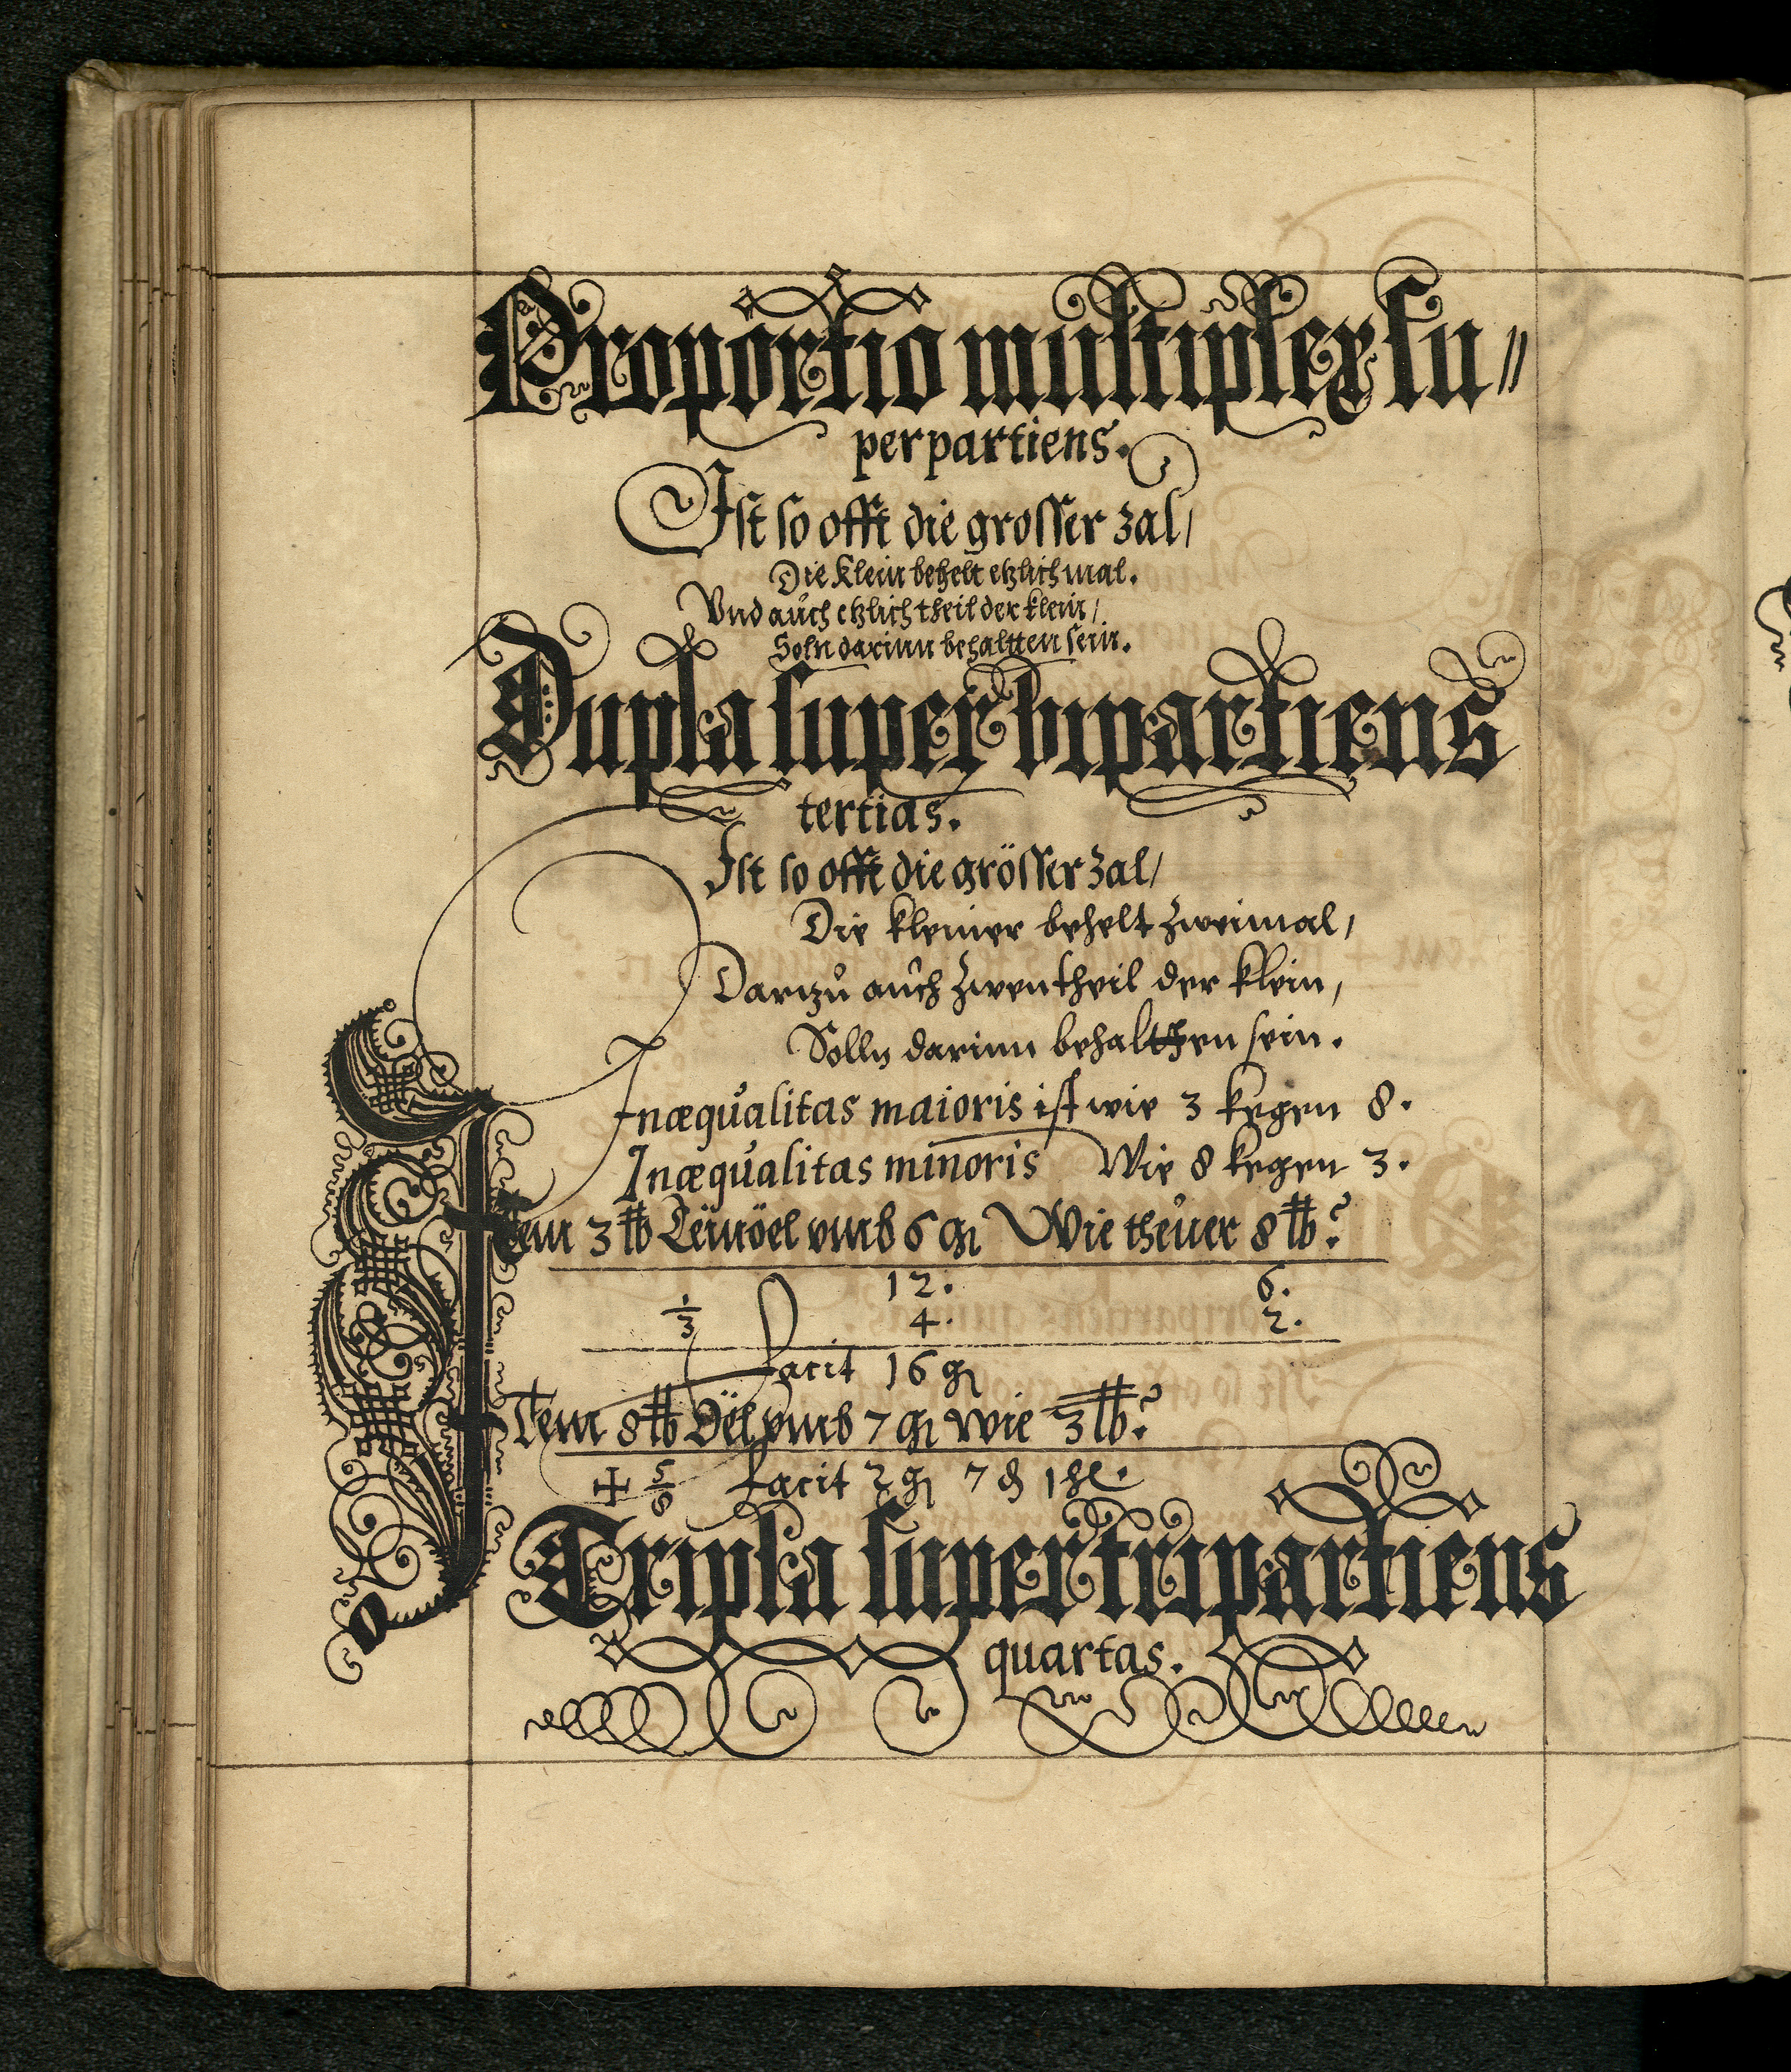 Proportio multiplex su⸗
perpartiens.
Ist so offt die grosser zal/
Die klein behelt etzlich mal.
Vnd auch etzlich theil der klein/
Soln darinn behaltten sein.
Dupla super bipartiens
tertias.
Ist so offt die grösser zal/
Die kleiner behelt zweimal/
Dartzu auch zwen theil der klein,
Solln darinn behalthen sein.
Inæqualitas maioris ist wie 3 kegen 8.
Inæqualitas minoris Wie 8 kegen 3.
Item 3 ℔ Leinöel vmb 6 gl Wie theuer 8 ℔?
12. 6.
1/3 4. 2.
facit 16 gl
Item 8 ℔ Öel vmb 7 gl wie 3 ℔?
✠ 5/8 facit 2 gl 7 ₰ 1 hl.
Tripla super tripartiens
quartas.